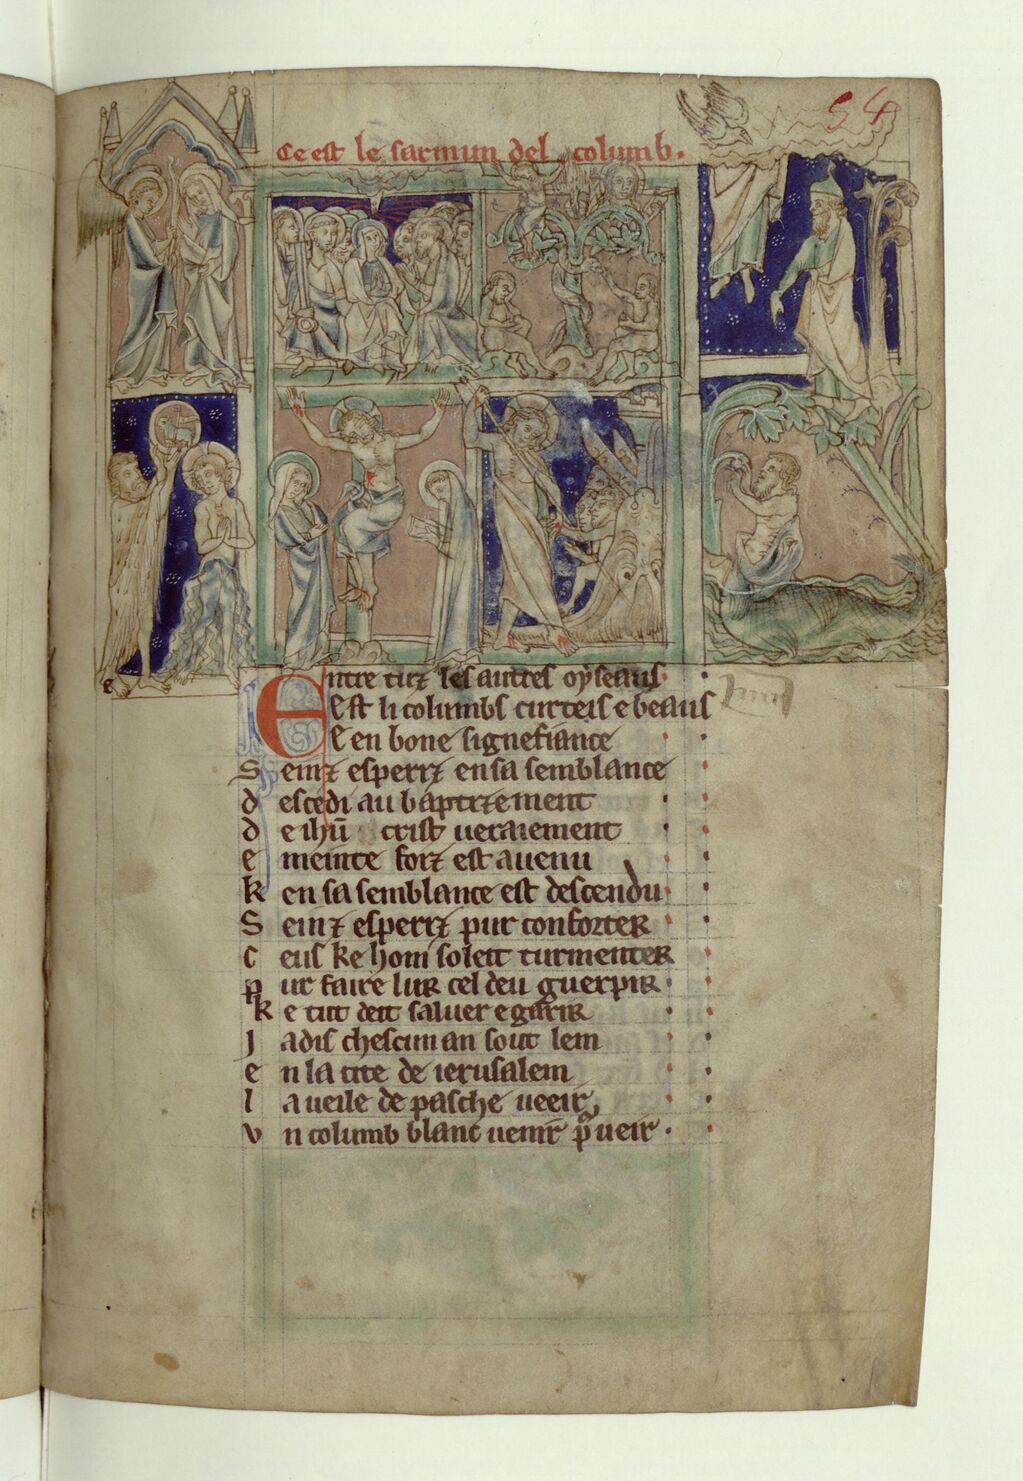 54
Ce est le sarmun del columb.
Entre tuz les autres oyseaus
Est li columbs curteis e beaus
E en bone signefiance
Seinz esperiz en sa semblance
descedi au baptezement
de ihũ crist ueraiement
e meinte foiz est auenu
k en sa semblance est descendu
Seinz esperiz pur conforter
ceus ke hom soleit turmenter
pur faire lur cel deu guerpir
ke tut deit saluer e garir
j adis chescun an sout lem
en la cite de ierusalem
la ueile de pasche ueeir
vn columb blanc uenir pͥ ueir